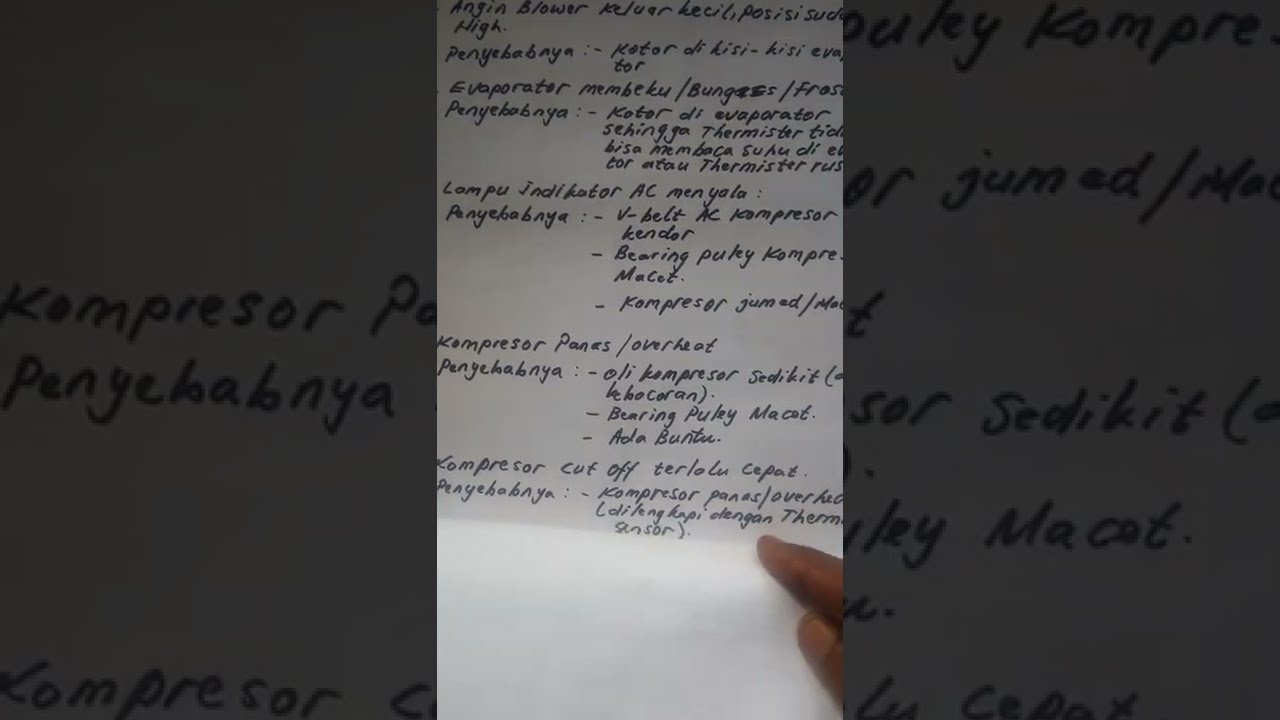 Angin Blower keluar kecil, posisi sud
High.
Penyebabnya : - Kotor di kisi-kisi eva
tor
Evaporator membeku / Bunges / Fros
Penyebabnya : - Kotor di evaporator
sehingga Thermister tid
bisa membaca suhu di e
tor atau Thermister rus
Lampu indikator AC menyala :
Penyebabnya : - V-belt AC kompresor
kendor
- Bearing puley Kompre
Macet.
- Kompresor jumed/Ma
Kompresor Panas / overheat
Penyebabnya : - Oli kompresor Sedikit (
kebocoran).
- Bearing Puley Macet.
- Ada Buntu.
Kompresor cut off terlalu cepat.
Penyebabnya : - Kompresor panas/overhea
(dilengkapi dengan Therm
sensor).